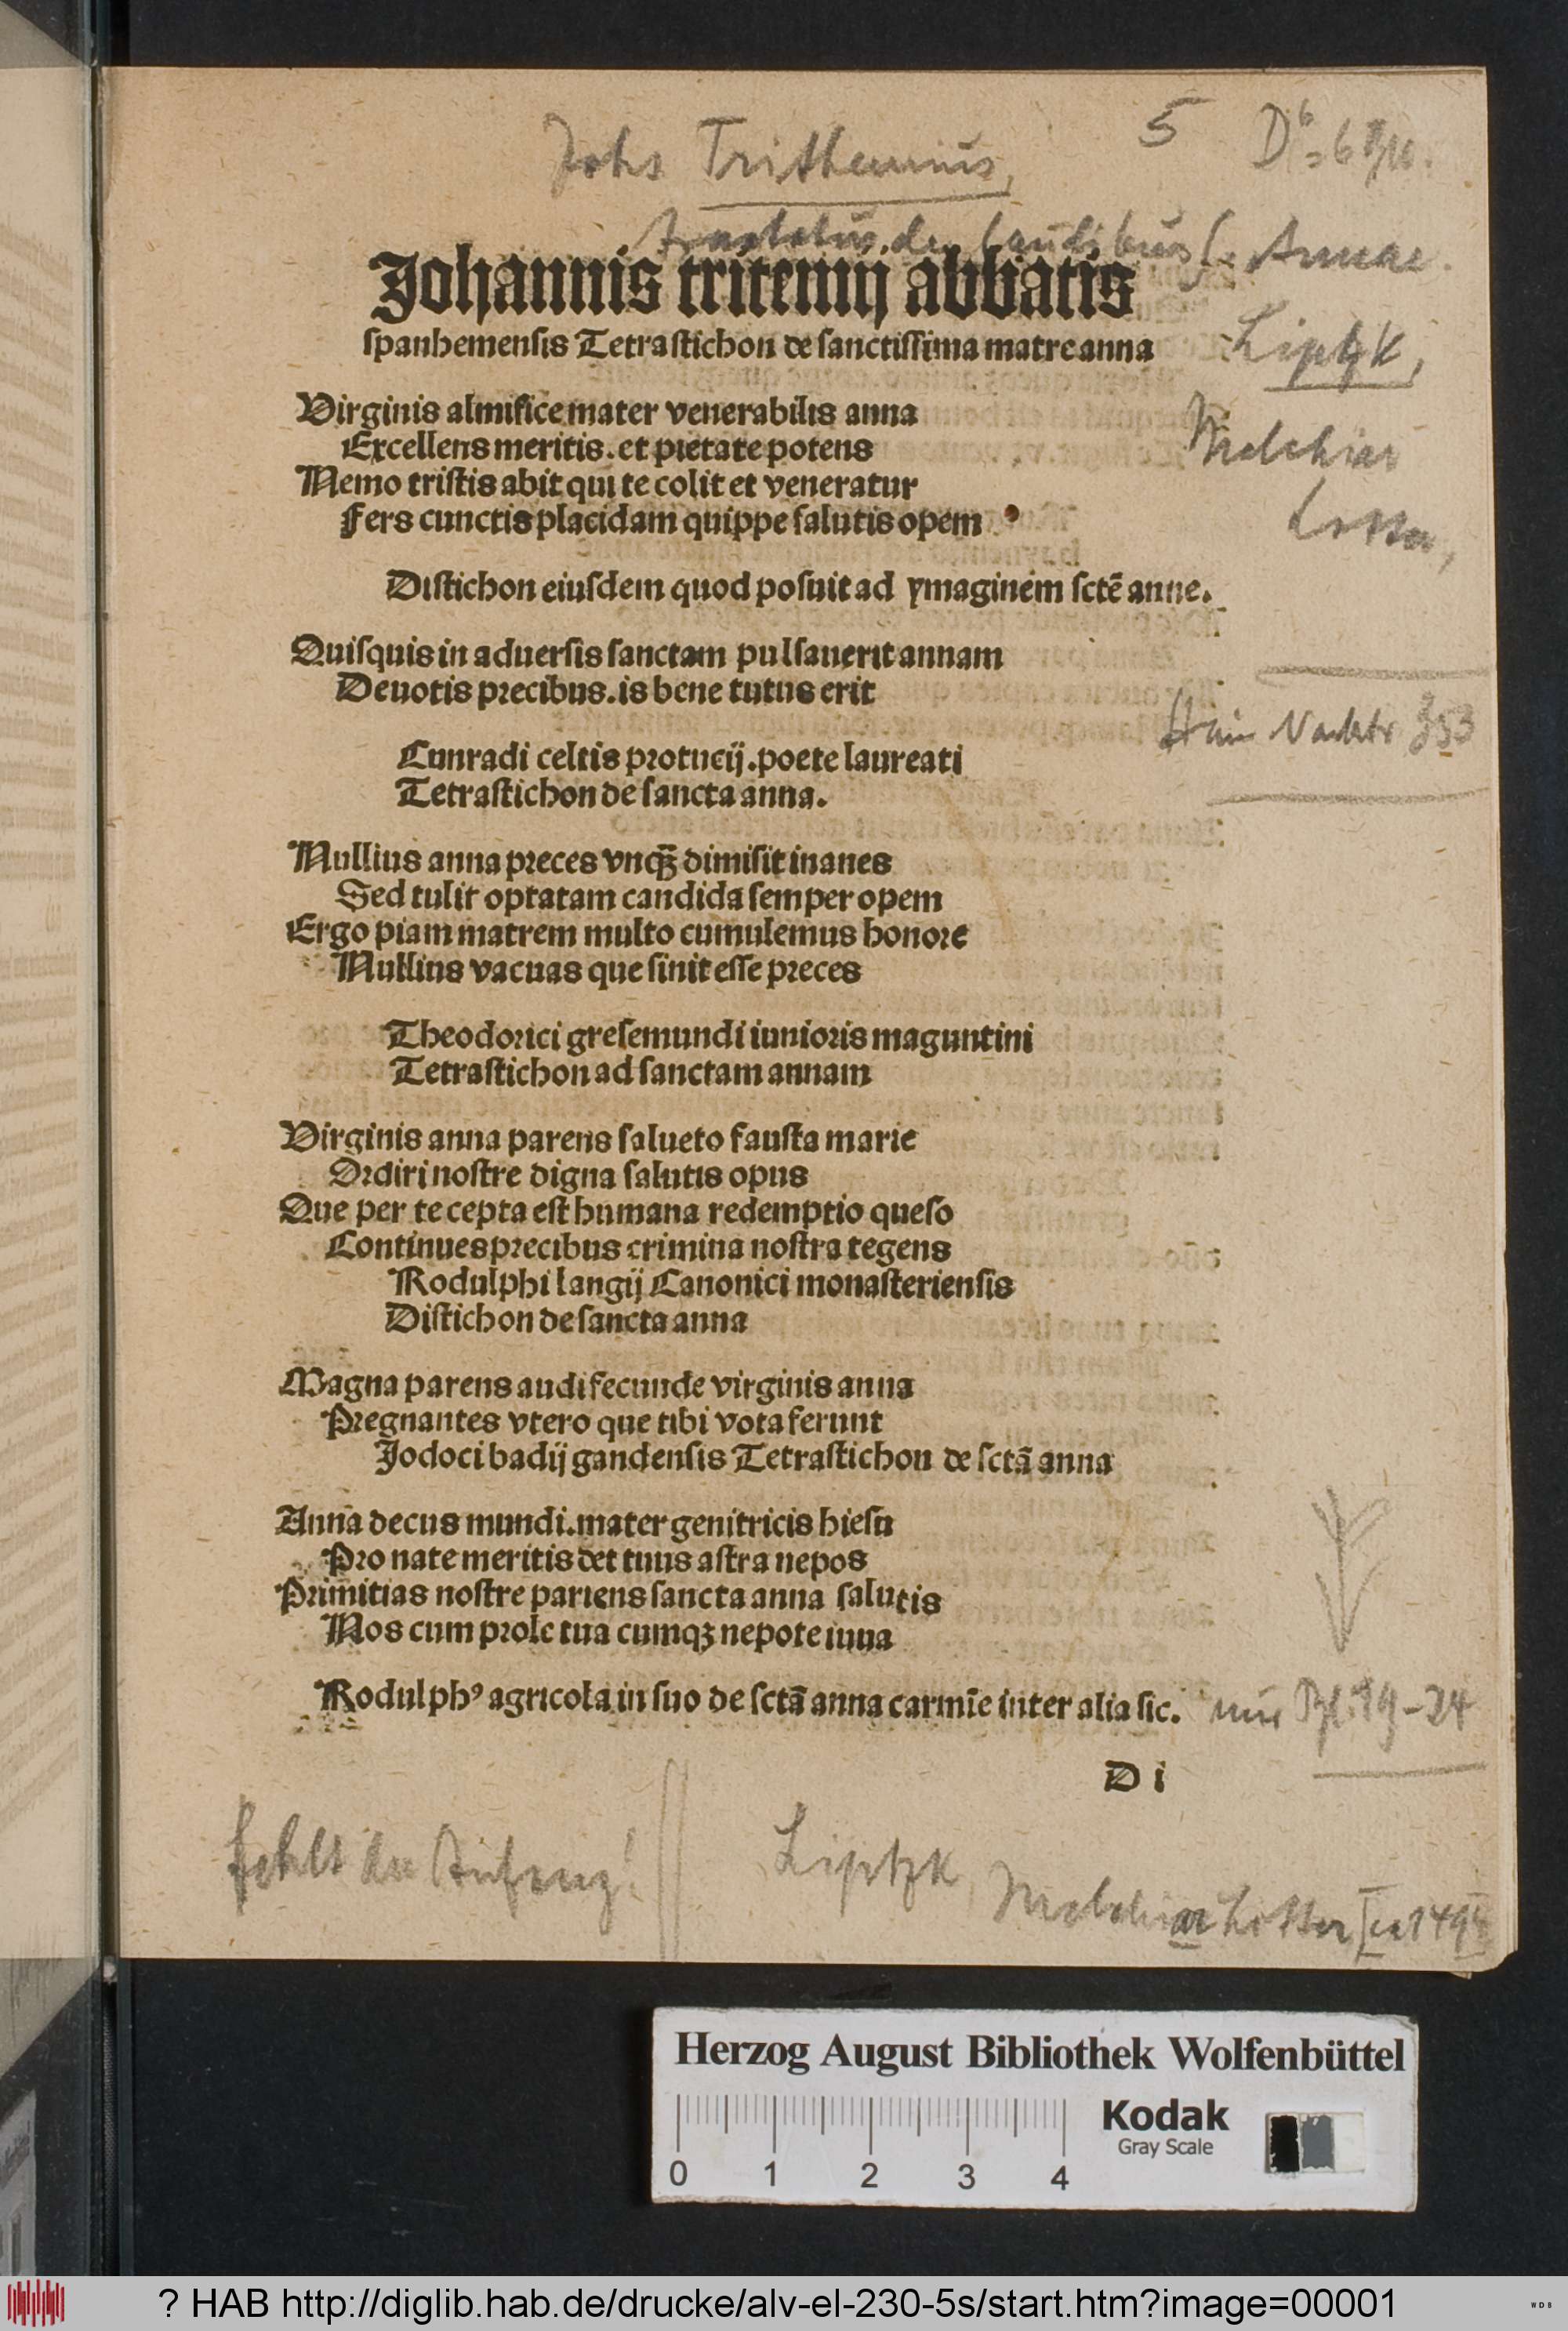 Johs Trithemius,
5
Tractatus de laudibus S. Annae.
Johannis tritemij abbatis
spanhemensis Tetrastichon de sanctissima matre anna
Liptzk,
Virginis almifice mater venerabilis anna
Excellens meritis. et pietate potens
Melchior
Nemo tristis abit qui te colit et veneratur
Fers cunctis placidam quippe salutis opem
Lotter,
Distichon eiusdem quod posuit ad ymaginem sctē anne.
Quisquis in aduersis sanctam pulsauerit annam
Deuotis precibus. is bene tutus erit
Hain Nachtr 353
Cunradi celtis protucij. poete laureati
Tetrastichon de sancta anna.
Nullius anna preces vnqꝫ̄ dimisit inanes
Sed tulit optatam candida semper opem
Ergo piam matrem multo cumulemus honore
Nullius vacuas que sinit esse preces
Theodorici gresemundi iunioris maguntini
Tetrastichon ad sanctam annam
Virginis anna parens salueto fausta marie
Ordiri nostre digna salutis opus
Que per te cepta est humana redemptio queso
Continues precibus crimina nostra tegens
Rodulphi langij Canonici monasteriensis
Distichon de sancta anna
Magna parens audi fecunde virginis anna
Pregnantes vtero que tibi vota ferunt
Jodoci badij gandensis Tetrastichon de sctā anna
Anna decus mundi. mater genitricis hiesu
Pro nate meritis det tuus astra nepos
Primitias nostre pariens sancta anna salutis
Nos cum prole tua cumqꝫ nepote iuua
Rodulphꝰ agricola in suo de sctā anna carmīe inter alia sic.
nur Bl. 19-24
D i
fehlt der Anfang!
Liptzk, Melchior Lotter
Herzog August Bibliothek Wolfenbüttel
Kodak
Gray Scale
0 1 2 3 4
? HAB http://diglib.hab.de/drucke/alv-el-230-5s/start.htm?image=00001
WDB